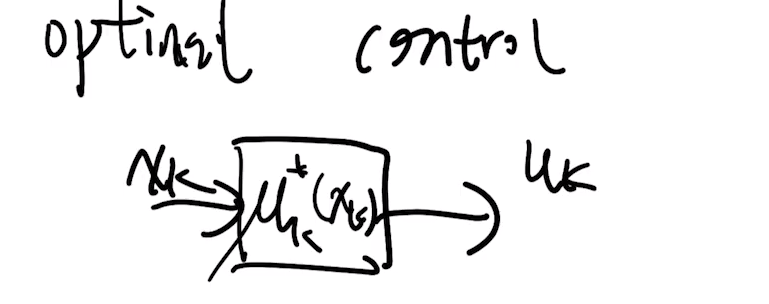 optimal control
x_k μ_k^*(x_k) u_k